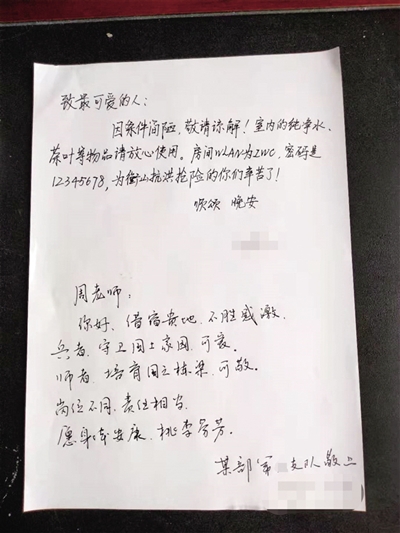 致最可爱的人：
因条件简陋，敬请谅解！室内的纯净水、
茶叶等物品请放心使用。房间WLAN为ZWC，密码是
12345678，为衡山抗洪抢险的你们辛苦了！
顺颂 晚安
周老师：
你好，借宿贵地，不胜感激，
兵者，守卫国土家园，可爱。
师者，培育国之栋梁，可敬。
岗位不同，责任相当。
愿身体安康，桃李芬芳。
某部第 支队敬上